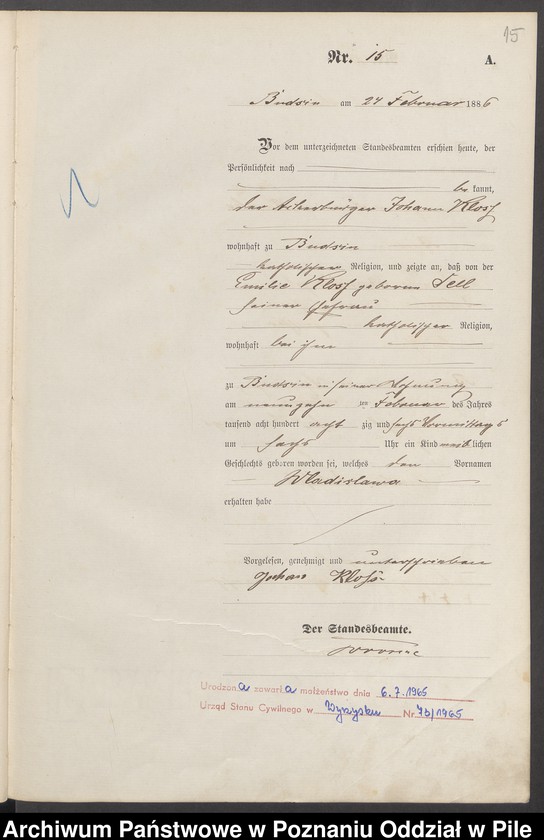 15
Nr. 15 A.
Budsin am 24 Februar 1886
Vor dem unterzeichneten Standesbeamten erschien heute, der
Persönlichkeit nach
be kannt,
der Ackerbürger Johann Kloss
wohnhaft zu Budsin
katholischer Religion, und zeigte an, daß von der
Emilie Kloss geborene Tell
seiner Ehefrau
katholischer Religion,
wohnhaft bei ihm
zu Budsin in seiner Wohnung
am neunzehn ten Februar des Jahres
tausend acht hundert acht zig und sechs Vormittags
um sechs Uhr ein Kind weiblichen
Geschlechts geboren worden sei, welches den Vornamen
Wladislawa
erhalten habe
Vorgelesen, genehmigt und unterschrieben
Johann Kloss
Der Standesbeamte.
Urodzona zawarła małżeństwo dnia 6.7.1965
Urząd Stanu Cywilnego w Wyrzysku Nr 73/1965
Archiwum Państwowe w Poznaniu Oddział w Pile